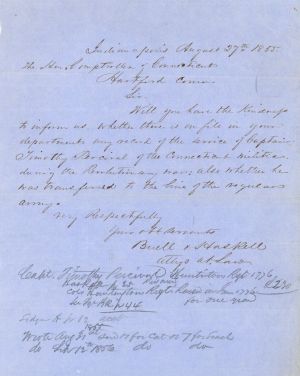 Indianapolis August 27th 1855.
the Hon. Comptroller of Connecticut
Hartford Conn.
Sir
Will you have the kindness
to inform us, whether there is on file in your
department any record of the service of Captain
Timothy Percival of the Connecticut militia,
during the Revolutionary war; also whether he
was transferred to the line of the regular
army.
Very Respectfully
Your Obt Servants
Buell & Haskell
Attys at Law
Capt. Timothy Percival Huntington Regt 1776,
Col Huntington Regt 1776
for one year
Wrote Aug 31st 1855
do 1856 do do